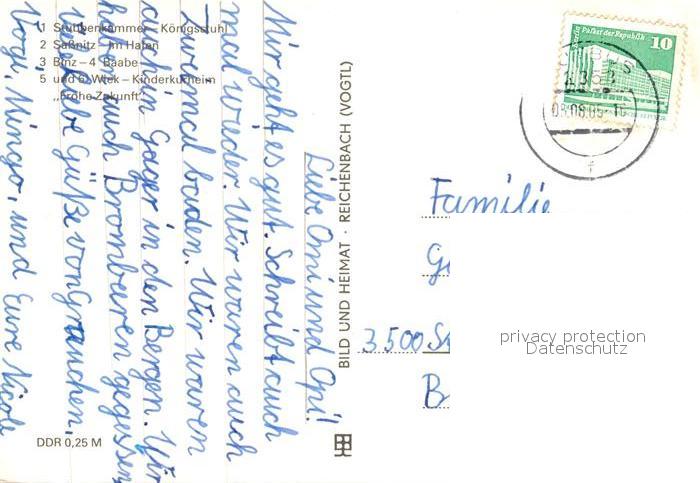 1 Stubbenkammer – Königsstuhl
2 Saßnitz – Im Hafen
3 Binz – 4 Baabe
5 und 6 Wiek – Kinderkurheim
„Frohe Zukunft"
Liebe Omi und Opi!
Mir geht es gut. Schreibt auch
mal wieder. Wir waren auch
Zweimal baden. Wir waren
auch in Gager in den Bergen. Wir
haben auch Brombeeren gegessen
Viele liebe Güße von Grauchen,
Mingo, und Eure Nicole
DDR 0,25 M
BILD UND HEIMAT · REICHENBACH (VOGTL)
Palast der Republik
10
Familie
3500 St
B
privacy protection
Datenschutz